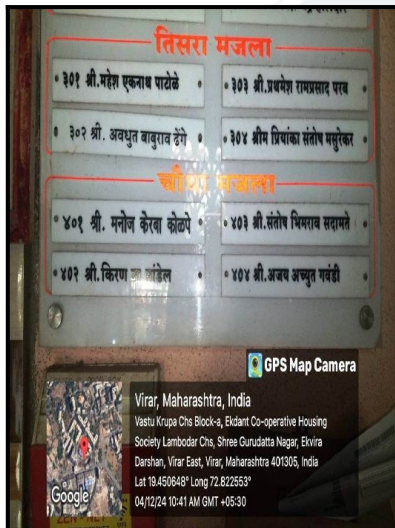 तिसरा मजला
३०१ श्री.महेश एकनाथ पाटोळे
३०३ श्री.प्रथमेश रामप्रसाद परब
३०२ श्री. अवधुत बाबुराव ढेंगे
३०४ श्रीम प्रियांका संतोष मसुरेकर
चौथा मजला
४०१ श्री. मनोज केरबा कोळपे
४०३ श्री.संतोष भिमराव सदामते
४०२ श्री.किरण
४०४ श्री.अजय अच्युत गवंडी
GPS Map Camera
Virar, Maharashtra, India
Vastu Krupa Chs Block-a, Ekdant Co-operative Housing
Society Lambodar Chs, Shree Gurudatta Nagar, Ekvira
Darshan, Virar East, Virar, Maharashtra 401305, India
Lat 19.450648° Long 72.822553°
04/12/24 10:41 AM GMT +05:30
Google